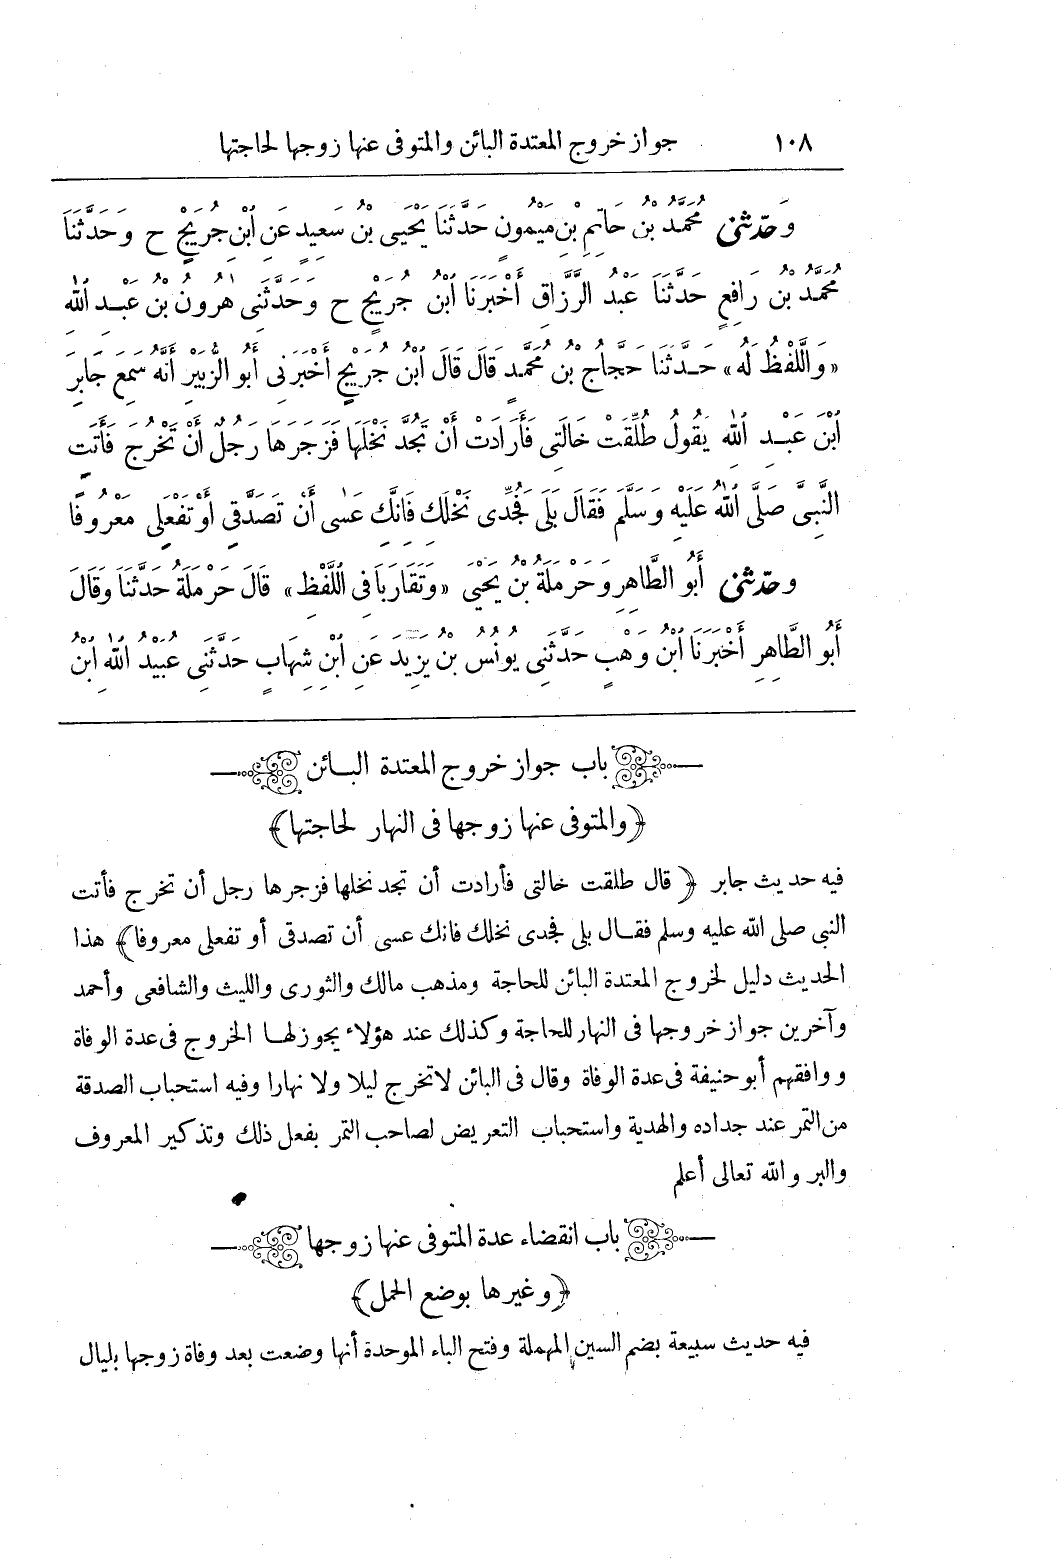 ١٠٨ جواز خروج المعتدة البائن والمتوفى عنها زوجها لحاجتها
وَحَدَّثَنِى مُحَمَّدُ بْنُ حَاتِمِ بْنِ مَيْمُونٍ حَدَّثَنَا يَحْيَى بْنُ سَعِيدٍ عَنِ ابْنِ جُرَيْجٍ ح وَحَدَّثَنَا
مُحَمَّدُ بْنُ رَافِعٍ حَدَّثَنَا عَبْدُ الرَّزَّاقِ أَخْبَرَنَا ابْنُ جُرَيْجٍ ح وَحَدَّثَنِى هٰرُونُ بْنُ عَبْدِ اللّٰهِ
«وَاللَّفْظُ لَهُ» حَدَّثَنَا حَجَّاجُ بْنُ مُحَمَّدٍ قَالَ قَالَ ابْنُ جُرَيْجٍ أَخْبَرَنِى أَبُو الزُّبَيْرِ أَنَّهُ سَمِعَ جَابِرَ
ابْنَ عَبْدِ اللّٰهِ يَقُولُ طُلِّقَتْ خَالَتِى فَأَرَادَتْ أَنْ تَجُدَّ نَخْلَهَا فَزَجَرَهَا رَجُلٌ أَنْ تَخْرُجَ فَأَتَتِ
النَّبِىَّ صَلَّى اللّٰهُ عَلَيْهِ وَسَلَّمَ فَقَالَ بَلَى فَجُدِّى نَخْلَكِ فَانَّكِ عَسَى أَنْ تَصَدَّقِى أَوْ تَفْعَلِى مَعْرُوفًا
وَحَدَّثَنِى أَبُو الطَّاهِرِ وَحَرْمَلَةُ بْنُ يَحْيَى «وَتَقَارَبَا فِى اللَّفْظِ» قَالَ حَرْمَلَةُ حَدَّثَنَا وَقَالَ
أَبُو الطَّاهِرِ أَخْبَرَنَا ابْنُ وَهْبٍ حَدَّثَنِى يُونُسُ بْنُ يَزِيدَ عَنِ ابْنِ شِهَابٍ حَدَّثَنِى عُبَيْدُ اللّٰهِ ابْنُ
باب جواز خروج المعتدة البائن
﴿والمتوفى عنها زوجها فى النهار لحاجتها﴾
فيه حديث جابر ﴿ قال طلقت خالتى فأرادت أن تجد نخلها فزجرها رجل أن تخرج فأتت
النبى صلى الله عليه وسلم فقال بلى فجدى نخلك فانك عسى أن تصدقى أو تفعلى معروفا﴾ هذا
الحديث دليل لخروج المعتدة البائن للحاجة ومذهب مالك والثورى والليث والشافعى وأحمد
وآخرين جواز خروجها فى النهار للحاجة وكذلك عند هؤلاء يجوز لها الخروج فى عدة الوفاة
ووافقهم أبو حنيفة فى عدة الوفاة وقال فى البائن لا تخرج ليلا ولا نهارا وفيه استحباب الصدقة
من التمر عند جداده والهدية واستحباب التعريض لصاحب التمر بفعل ذلك وتذكير المعروف
والبر والله تعالى أعلم
باب انقضاء عدة المتوفى عنها زوجها
﴿وغيرها بوضع الحمل﴾
فيه حديث سبيعة بضم السين المهملة وفتح الباء الموحدة أنها وضعت بعد وفاة زوجها بليال